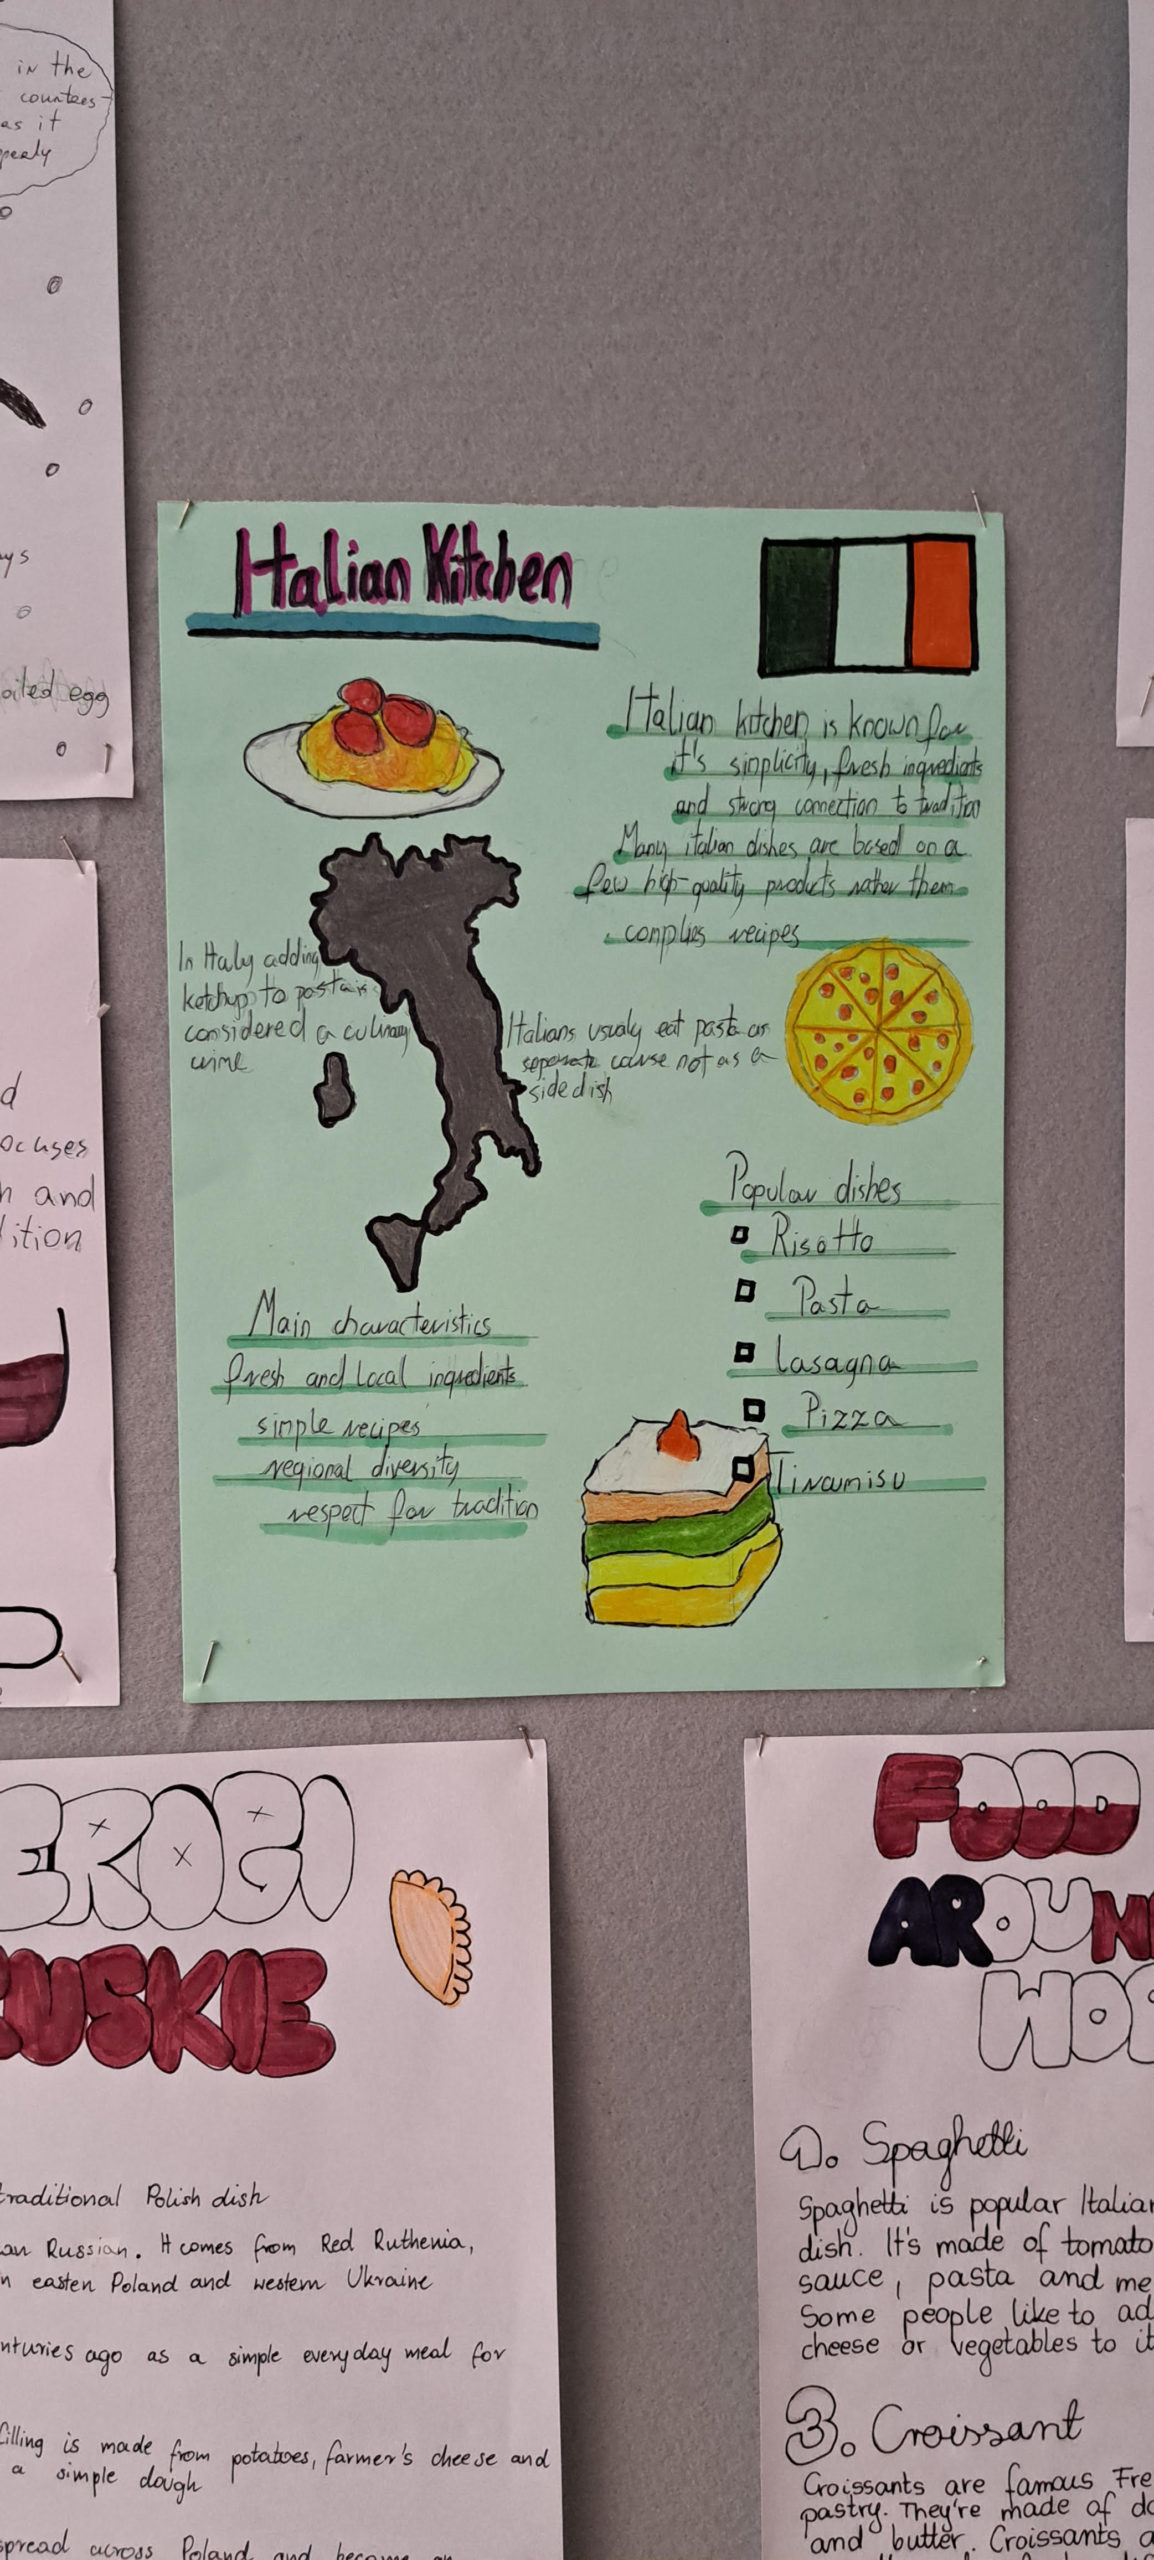 in the
countees-
as it
peorly
ys
oiled egg
d
ocuses
h and
lition
Italian Kitchen
Italian kitchen is known for
it's simplicity, fresh ingredients
and strong connection to tradition
Many italian dishes are based on a
few high-quality products rather them
complies recipes
In Italy adding
ketchup to pasta is
considered a culinary
crime
Italians usualy eat pasta as
seperate course not as a
side dish
Popular dishes
Risotto
Pasta
Lasagna
Pizza
Tiramisu
Main characteristics
fresh and local ingredients
simple recipes
regional diversity
respect for tradition
EROGI
USKIE
traditional Polish dish
an Russian. It comes from Red Ruthenia,
n easten Poland and western Ukraine
nturies ago as a simple everyday meal for
filling is made from potatoes, farmer's cheese and
a simple dough
spread across Poland and become an
FOOD
AROUN
WO
1. Spaghetti
Spaghetti is popular Italian
dish. It's made of tomato
sauce, pasta and me
Some people like to ad
cheese or vegetables to it
3. Croissant
Croissants are famous Fre
pastry. They're made of do
and butter. Croissants a